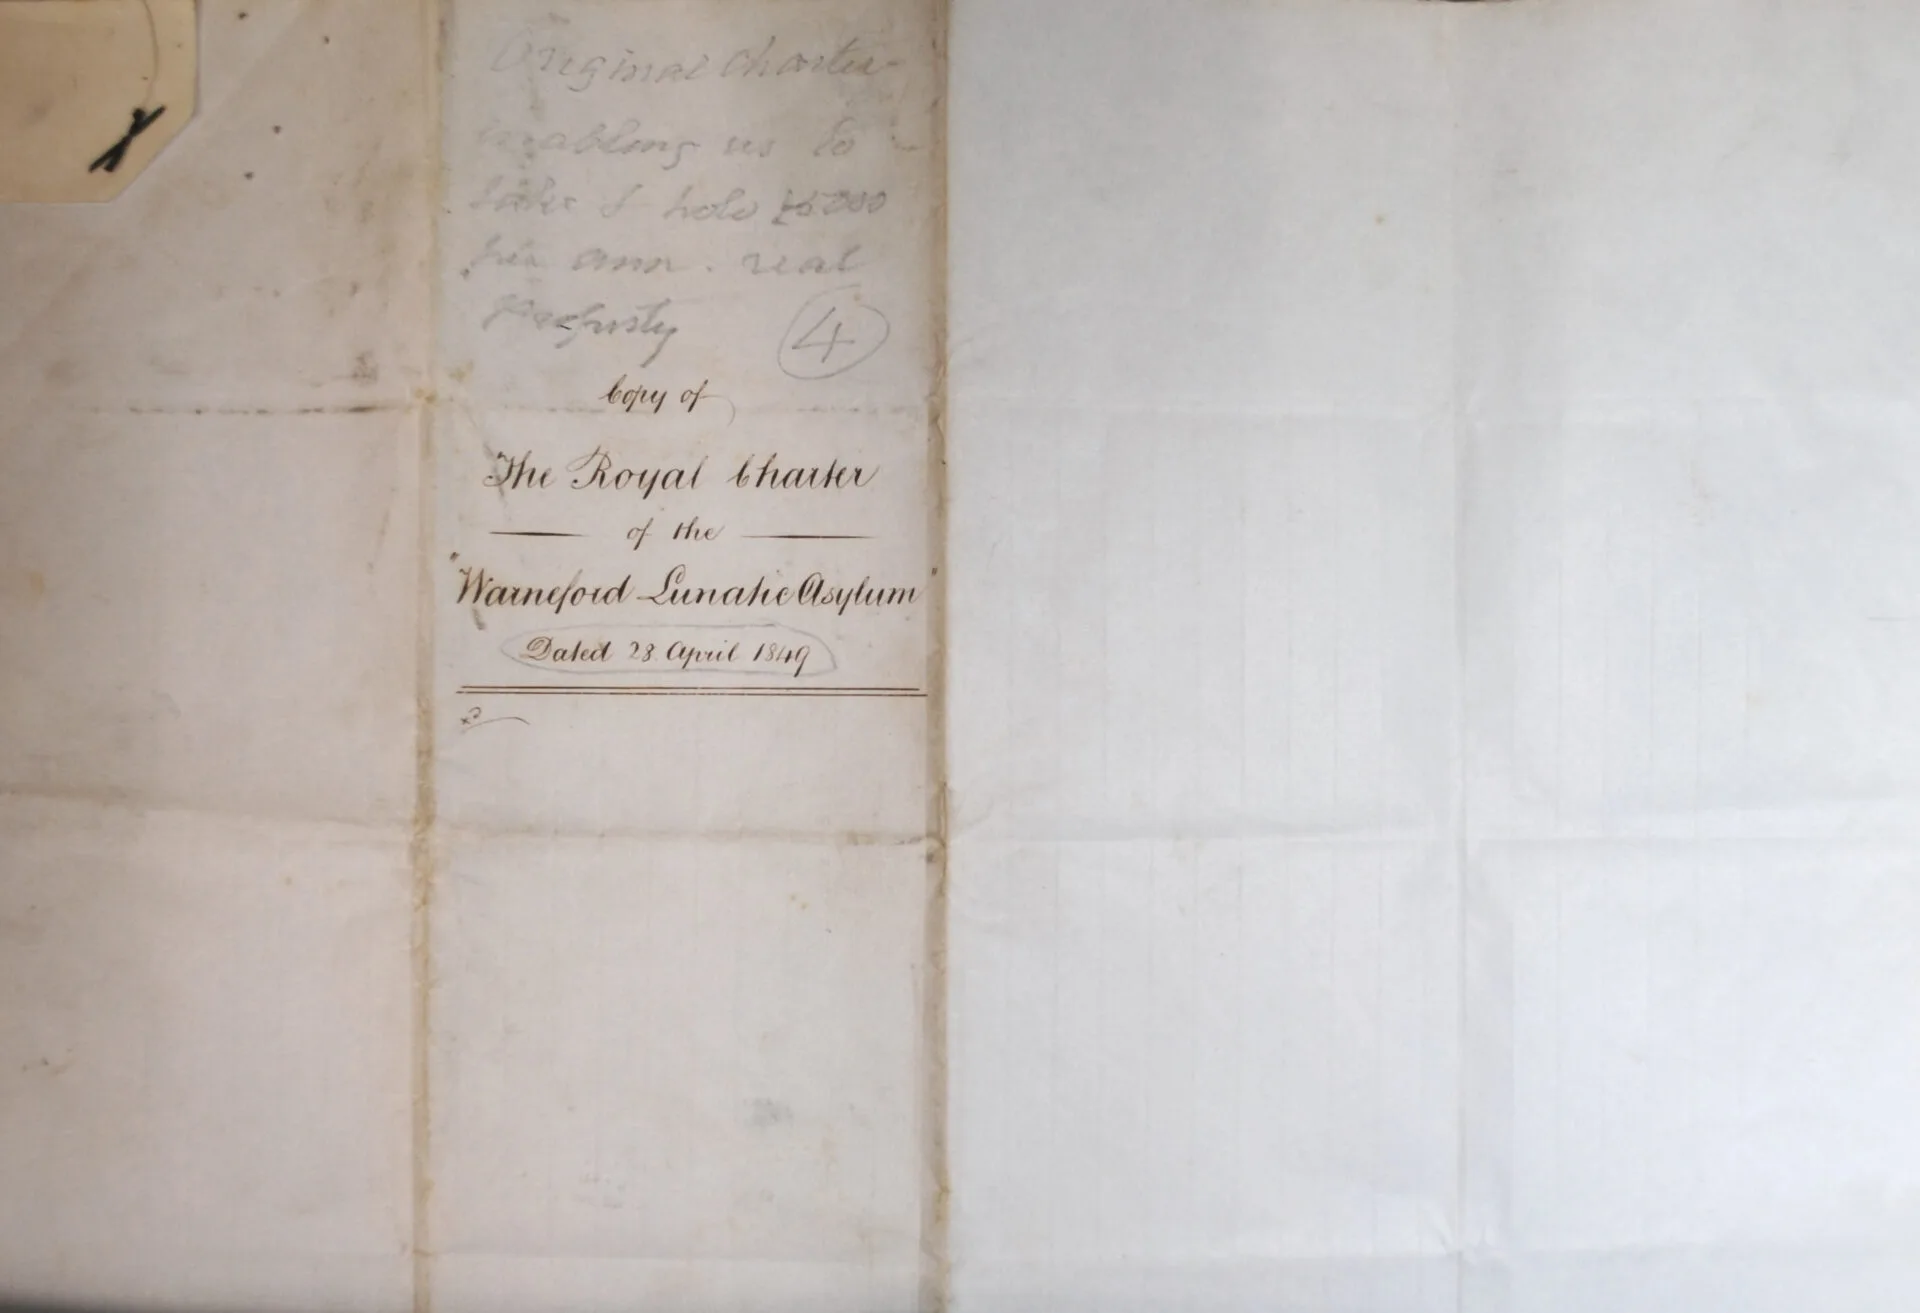 Original Charter
enabling us to
take & hold £5000
per ann. real
Property
4
Copy of
The Royal Charter
of the
"Warneford Lunatic Asylum"
Dated 28 April 1849